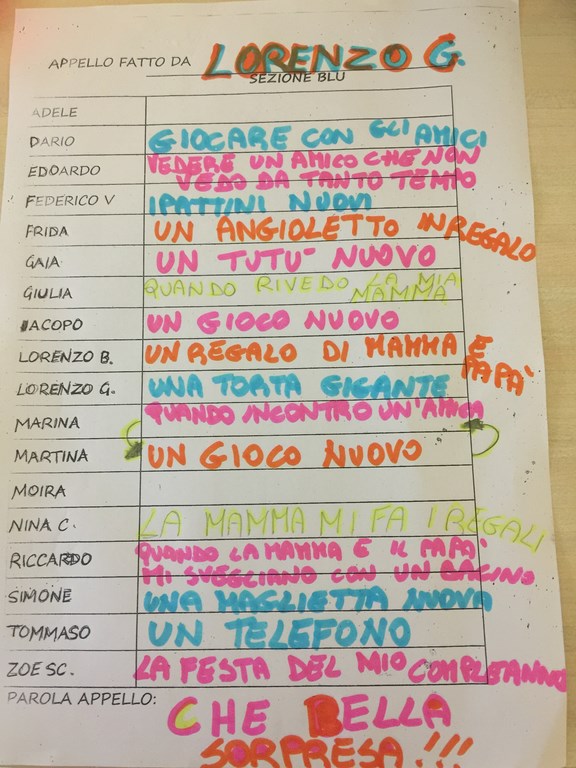 APPELLO FATTO DA LORENZO G.
SEZIONE BLU
ADELE
DARIO GIOCARE CON GLI AMICI
EDOARDO VEDERE UN AMICO CHE NON
VEDO DA TANTO TEMPO
FEDERICO V I PATTINI NUOVI
FRIDA UN ANGIOLETTO IN REGALO
GAIA UN TUTU' NUOVO
GIULIA QUANDO RIVEDO LA MIA
MAMMA
IACOPO UN GIOCO NUOVO
LORENZO B. UN REGALO DI MAMMA E
PAPA'
LORENZO G. UNA TORTA GIGANTE
MARINA QUANDO INCONTRO UN'AMICA
MARTINA UN GIOCO NUOVO
MOIRA
NINA C. LA MAMMA MI FA I REGALI
RICCARDO QUANDO LA MAMMA E IL PAPA'
MI SVEGLIANO CON UN BACINO
SIMONE UNA MAGLIETTA NUOVA
TOMMASO UN TELEFONO
ZOE SC. LA FESTA DEL MIO COMPLEANNO
PAROLA APPELLO: CHE BELLA
SORPRESA!!!